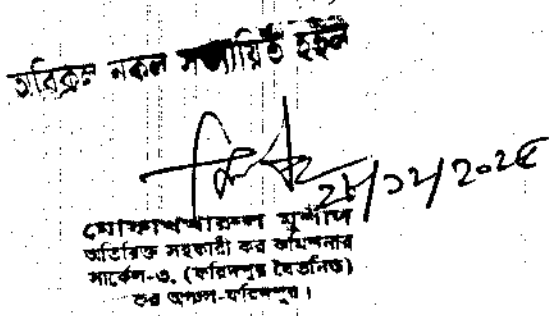 অবিকল নকল সত্যায়িত হইল
২৮/১২/২০২৫
অতিরিক্ত সহকারী কর কমিশনার
সার্কেল-৩, (ফরিদপুর বৈতনিক)
কর অঞ্চল-ফরিদপুর।